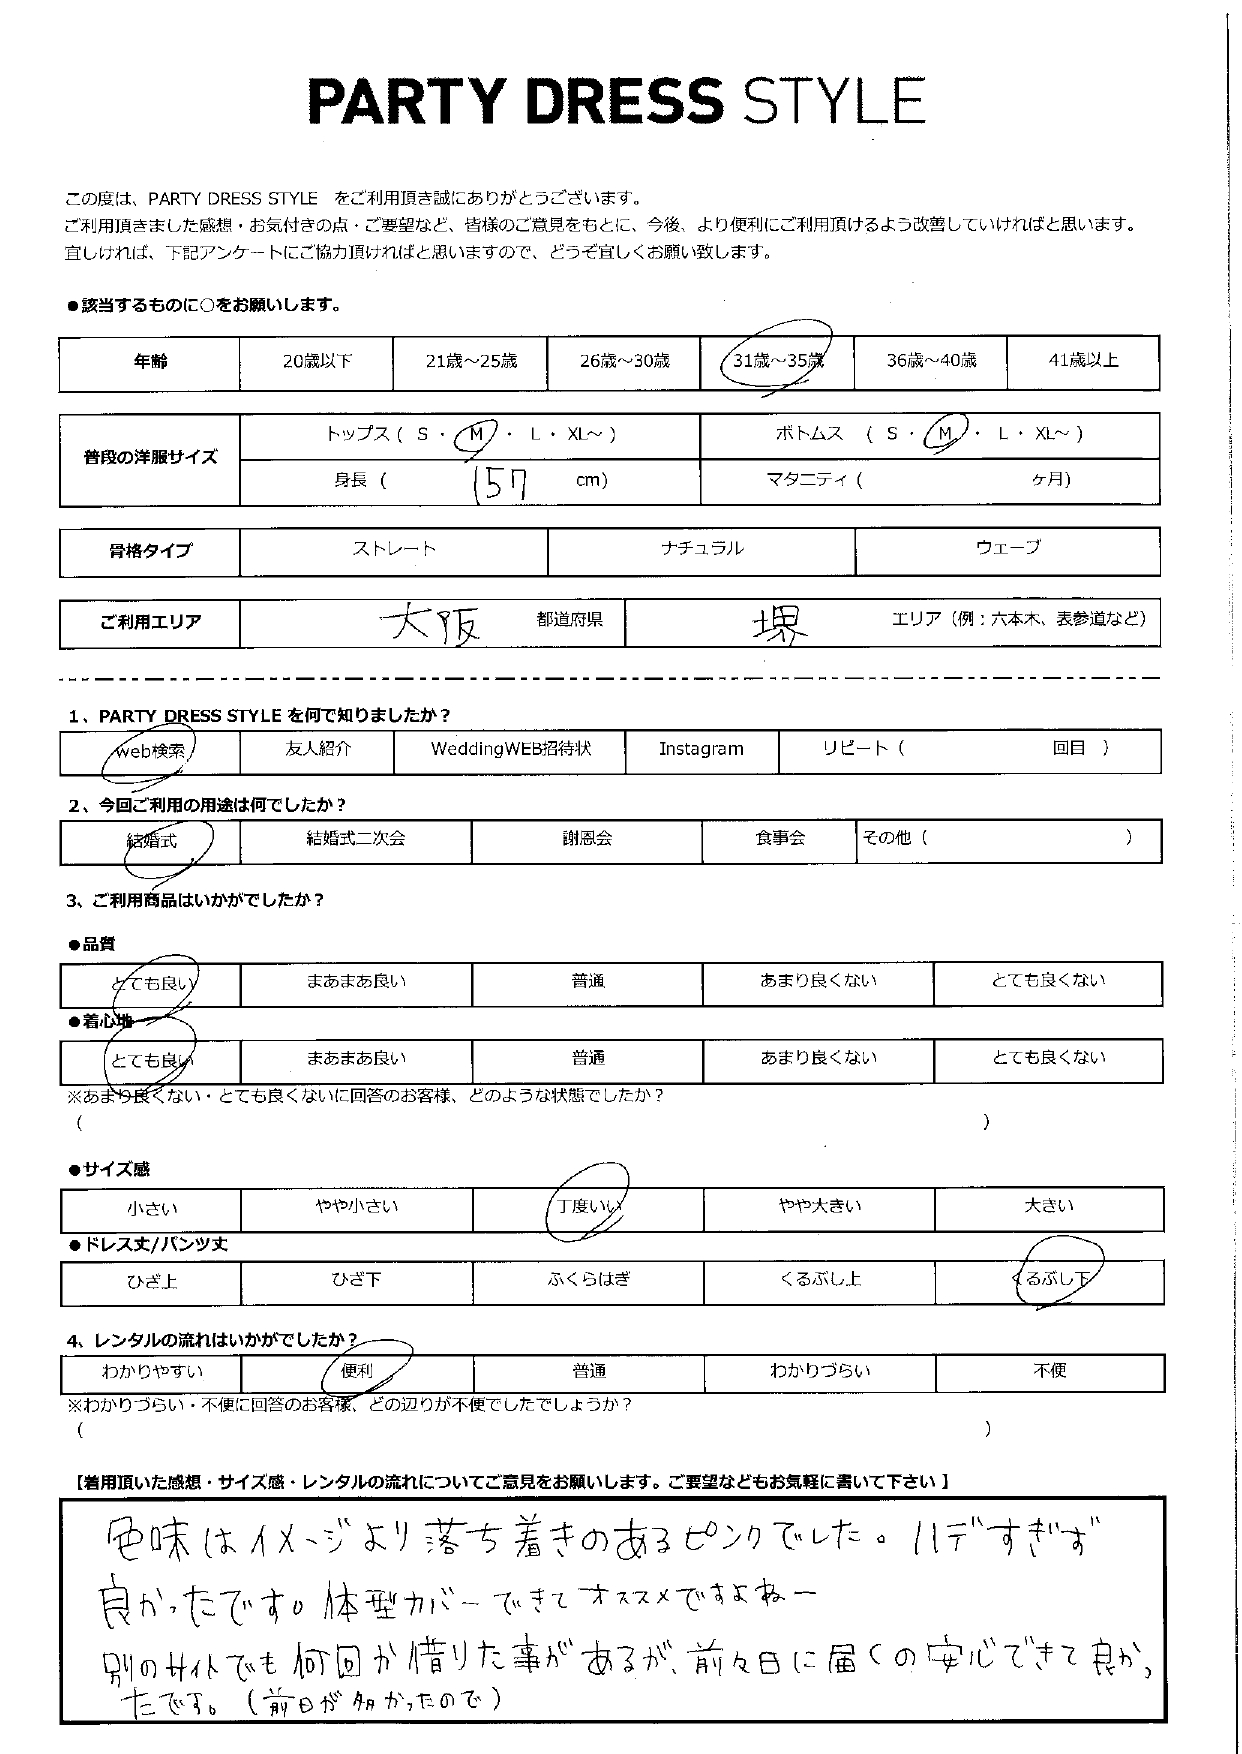 PARTY DRESS STYLE
この度は、PARTY DRESS STYLE をご利用頂き誠にありがとうございます。
ご利用頂きました感想・お気付きの点・ご要望など、皆様のご意見をもとに、今後、より便利にご利用頂けるよう改善していければと思います。
宜しければ、下記アンケートにご協力頂ければと思いますので、どうぞ宜しくお願い致します。
●該当するものに○をお願いします。
年齢 20歳以下 21歳～25歳 26歳～30歳 31歳～35歳 36歳～40歳 41歳以上
普段の洋服サイズ
トップス ( S ・ M ・ L ・ XL～ ) ボトムス ( S ・ M ・ L ・ XL～ )
身長 ( 157 cm) マタニティ ( ヶ月)
骨格タイプ ストレート ナチュラル ウェーブ
ご利用エリア 大阪 都道府県 堺 エリア（例：六本木、表参道など）
1、PARTY DRESS STYLE を何で知りましたか？
web検索 友人紹介 WeddingWEB招待状 Instagram リピート ( 回目 )
2、今回ご利用の用途は何でしたか？
結婚式 結婚式二次会 謝恩会 食事会 その他 ( )
3、ご利用商品はいかがでしたか？
●品質
とても良い まあまあ良い 普通 あまり良くない とても良くない
●着心地
とても良い まあまあ良い 普通 あまり良くない とても良くない
※あまり良くない・とても良くないに回答のお客様、どのような状態でしたか？
( )
●サイズ感
小さい やや小さい 丁度いい やや大きい 大きい
●ドレス丈/パンツ丈
ひざ上 ひざ下 ふくらはぎ くるぶし上 くるぶし下
4、レンタルの流れはいかがでしたか？
わかりやすい 便利 普通 わかりづらい 不便
※わかりづらい・不便に回答のお客様、どの辺りが不便でしたでしょうか？
( )
【着用頂いた感想・サイズ感・レンタルの流れについてご意見をお願いします。ご要望などもお気軽に書いて下さい 】
色味はイメージより落ち着きのあるピンクでした。ハデすぎず
良かったです。体型カバーできてオススメですよねー
別のサイトでも何回か借りた事があるが、前々日に届くの安心できて良かっ
たです。（前日が多かったので）